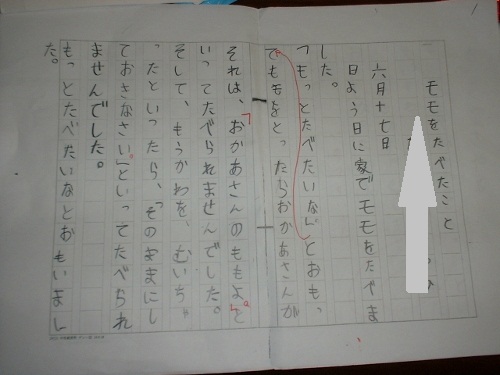 モモをたべたこと
六月十七日
日よう日に家でモモをたべま
した。
「もっとたべたいな」とおもっ
てももをとったらおかあさんが
それは、「おかあさんのももよ。」と
いってたべられませんでした。
そして、もうかわを、むいちゃ
ったといったら、「そのままにし
ておきなさい。」といってたべられ
ませんでした。
もっとたべたいなとおもいまし
た。